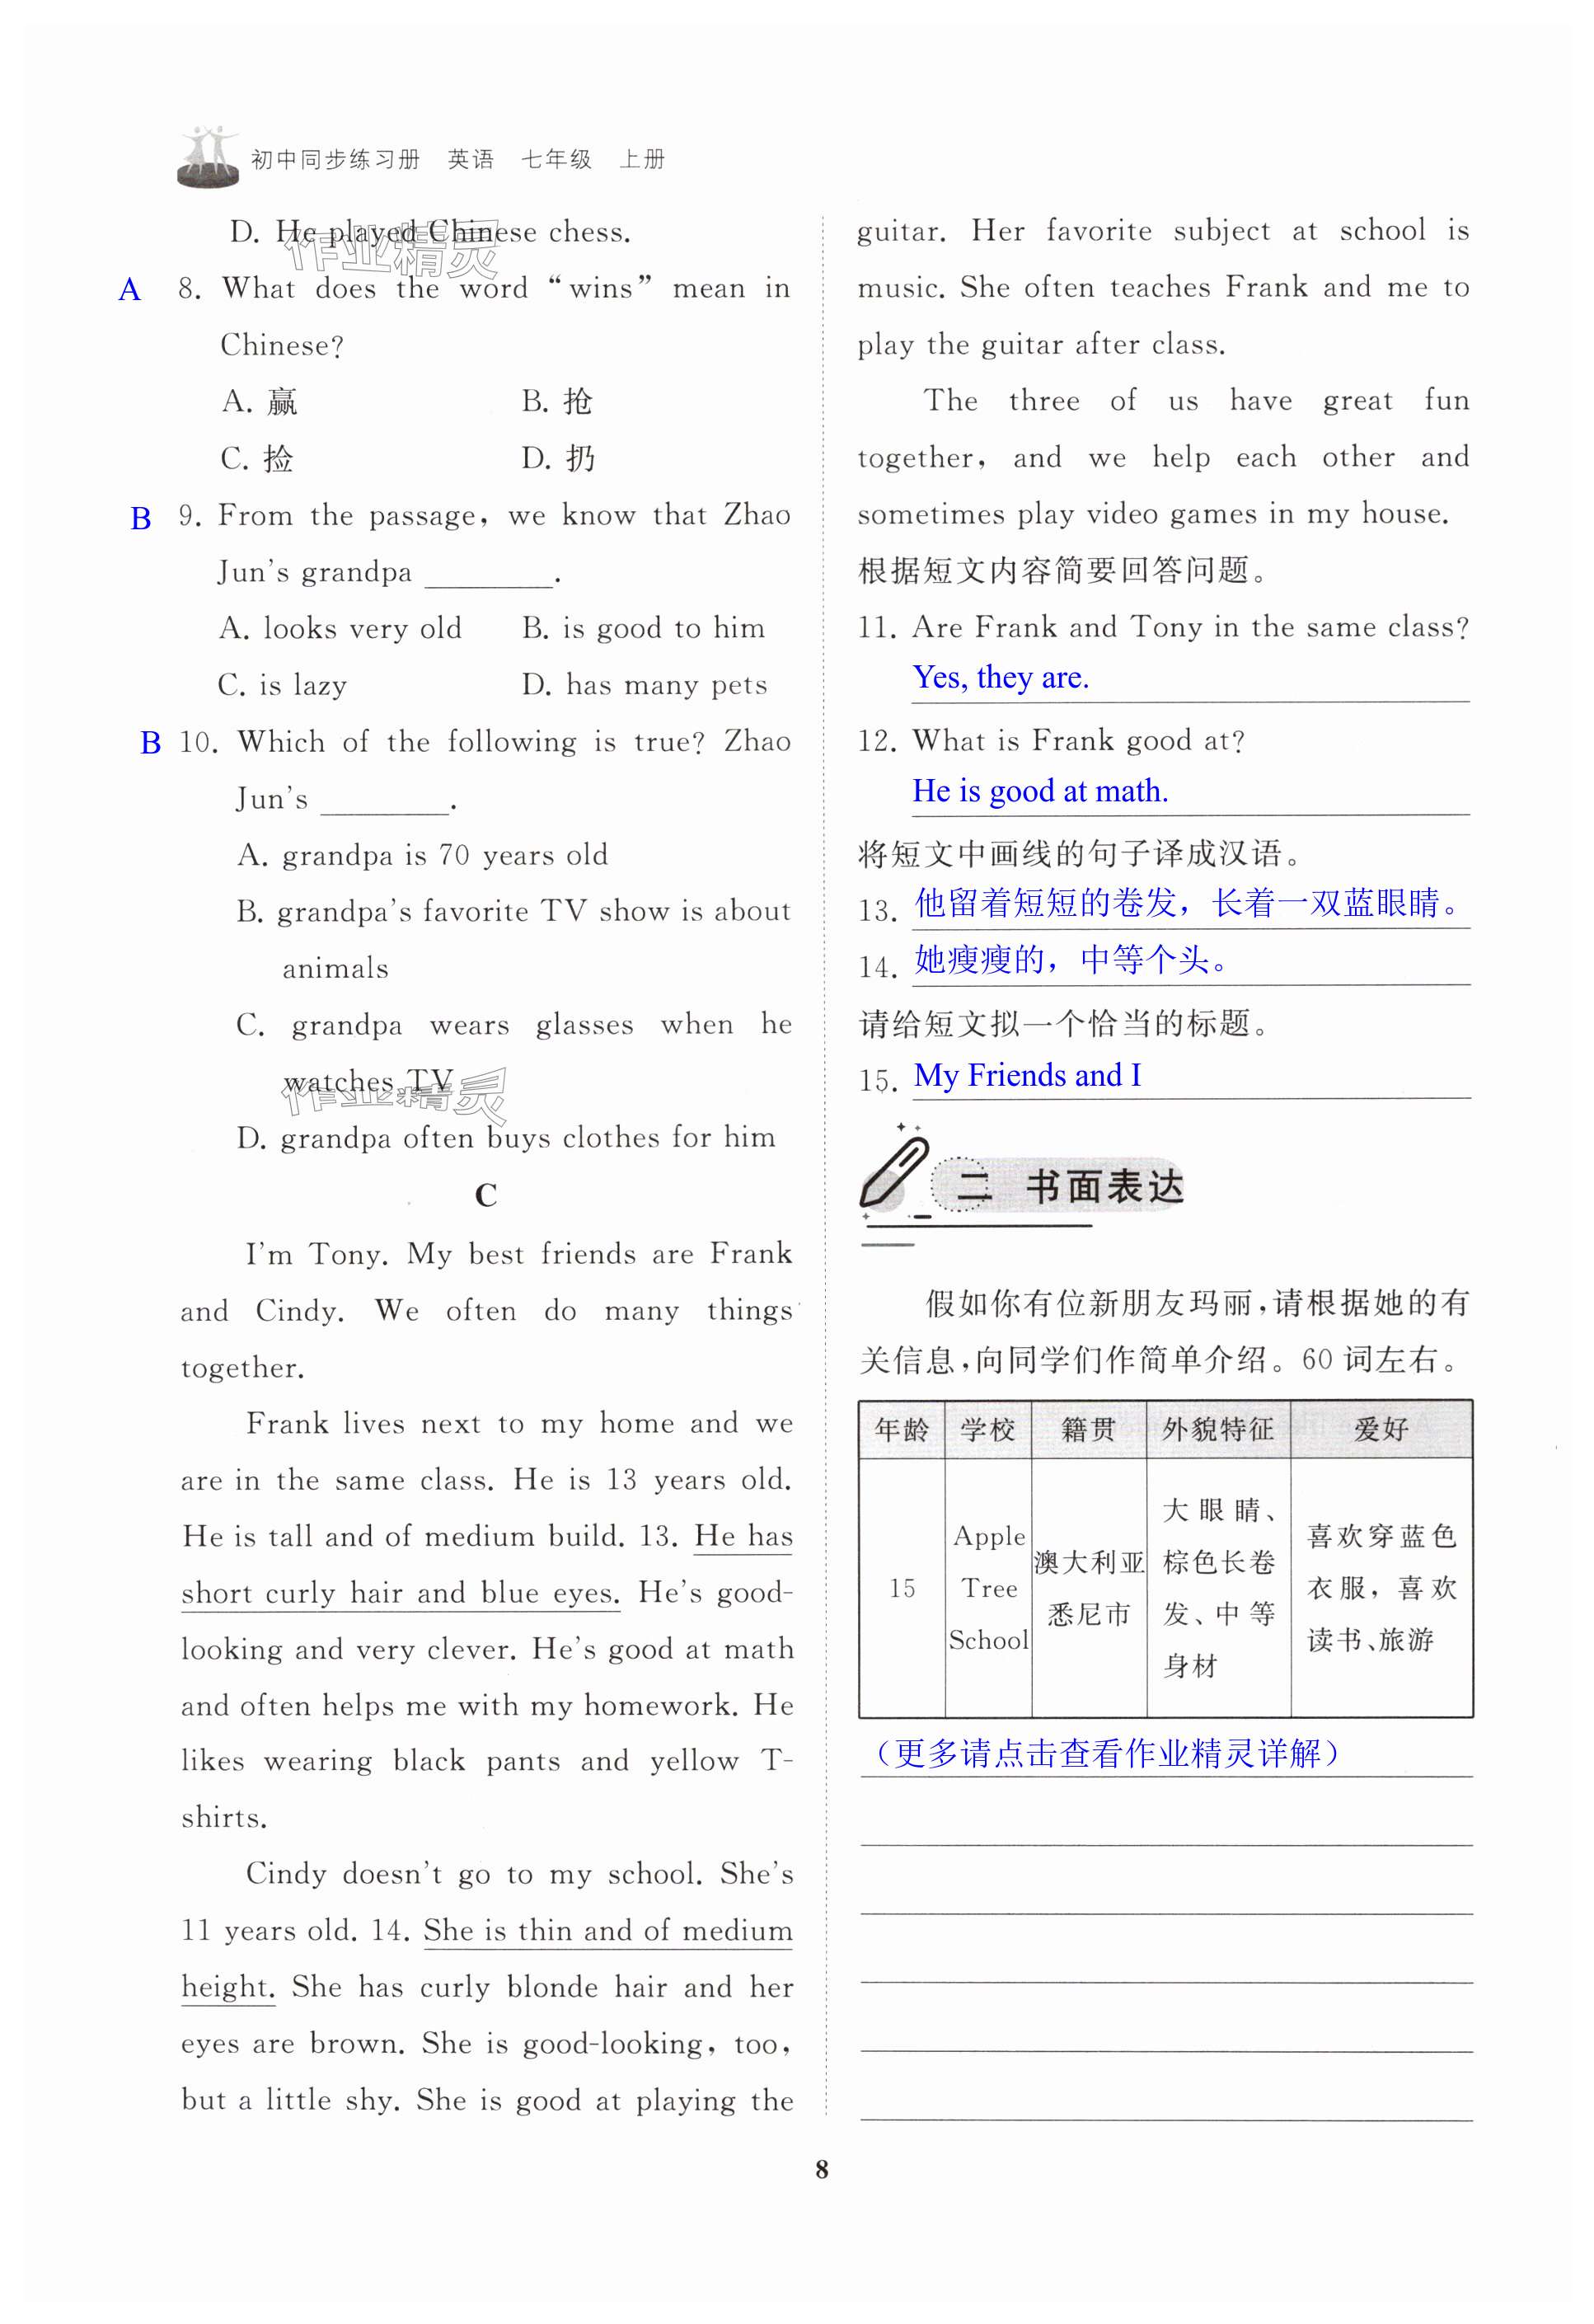 初中同步练习册 英语 七年级 上册
D. He played Chinese chess.
A 8. What does the word “wins” mean in
Chinese?
A. 赢 B. 抢
C. 捡 D. 扔
B 9. From the passage, we know that Zhao
Jun's grandpa ________.
A. looks very old B. is good to him
C. is lazy D. has many pets
B 10. Which of the following is true? Zhao
Jun's ________.
A. grandpa is 70 years old
B. grandpa's favorite TV show is about
animals
C. grandpa wears glasses when he
watches TV
D. grandpa often buys clothes for him
C
I'm Tony. My best friends are Frank
and Cindy. We often do many things
together.
Frank lives next to my home and we
are in the same class. He is 13 years old.
He is tall and of medium build. 13. He has
short curly hair and blue eyes. He's good-
looking and very clever. He's good at math
and often helps me with my homework. He
likes wearing black pants and yellow T-
shirts.
Cindy doesn't go to my school. She's
11 years old. 14. She is thin and of medium
height. She has curly blonde hair and her
eyes are brown. She is good-looking, too,
but a little shy. She is good at playing the
guitar. Her favorite subject at school is
music. She often teaches Frank and me to
play the guitar after class.
The three of us have great fun
together, and we help each other and
sometimes play video games in my house.
根据短文内容简要回答问题。
11. Are Frank and Tony in the same class?
Yes, they are.
12. What is Frank good at?
He is good at math.
将短文中画线的句子译成汉语。
13. 他留着短短的卷发，长着一双蓝眼睛。
14. 她瘦瘦的，中等个头。
请给短文拟一个恰当的标题。
15. My Friends and I
二 书面表达
假如你有位新朋友玛丽,请根据她的有
关信息,向同学们作简单介绍。60 词左右。
年龄 学校 籍贯 外貌特征 爱好
15
Apple
Tree
School
澳大利亚
悉尼市
大眼睛、
棕色长卷
发、中等
身材
喜欢穿蓝色
衣服，喜欢
读书、旅游
（更多请点击查看作业精灵详解）
8
作业精灵
作业精灵